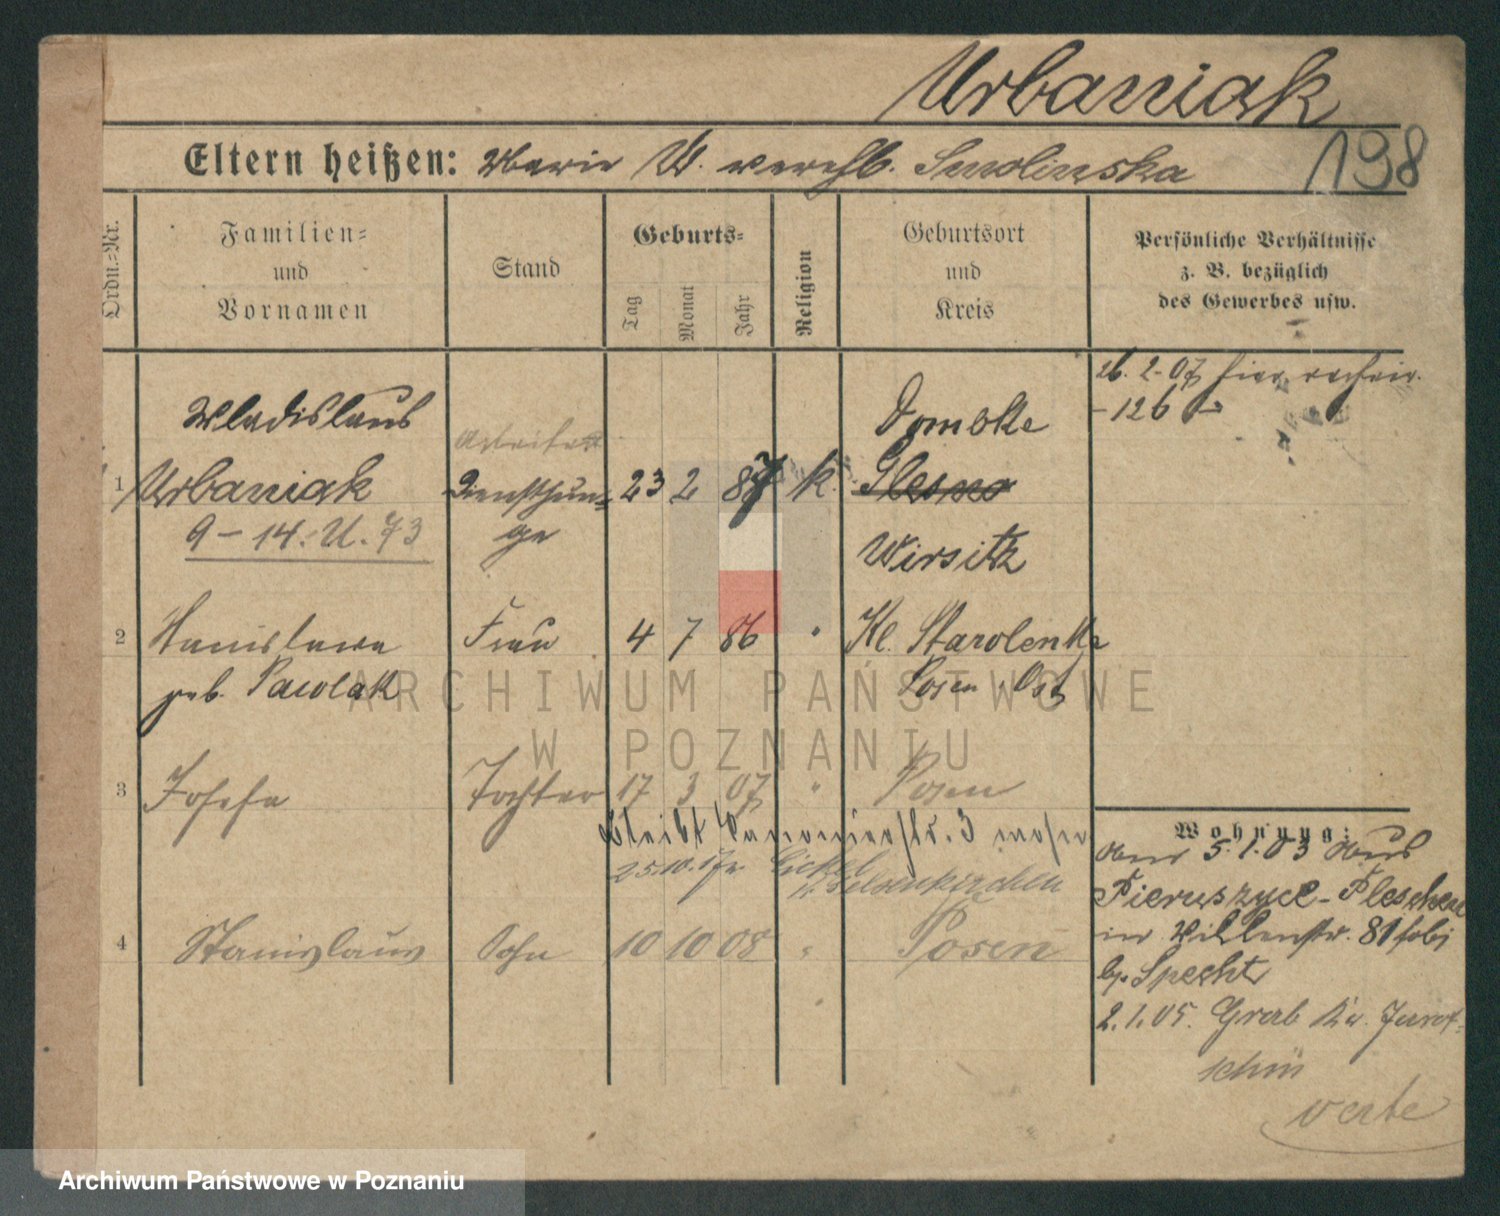 Urbaniak
Eltern heißen: Marie U. verehl. Smolinska
198
Ordn.-Nr.
Familien-
und
Vornamen
Stand
Geburts-
Tag
Monat
Jahr
Religion
Geburtsort
und
Kreis
Persönliche Verhältnisse
z. B. bezüglich
des Gewerbes usw.
26. 2. 07 hier
-126
Wladislaus
Arbeiter
Domske
1 Urbaniak Dienstjun- 23 2 87 k. Glesno
9-14. U. 73
ge
Wirsitz
2 Stanislawa Frau 4 7 86 " Kl. Starolenka
geb. Pawlak Posen Ost
ARCHIWUM PAŃSTWOWE
W POZNANIU
3 Josefa Tochter 17 3 07 " Posen
bleibt 3
25.10.
Gelsenkirchen
4 Stanislaus Sohn 10 10 08 " Posen
Wohnung:
5. 1. 03 aus
Pieruszyce-Pleschen
81
b/. Specht
2. 1. 05. Grab Kr. Jarot-
schin
verte
Archiwum Państwowe w Poznaniu